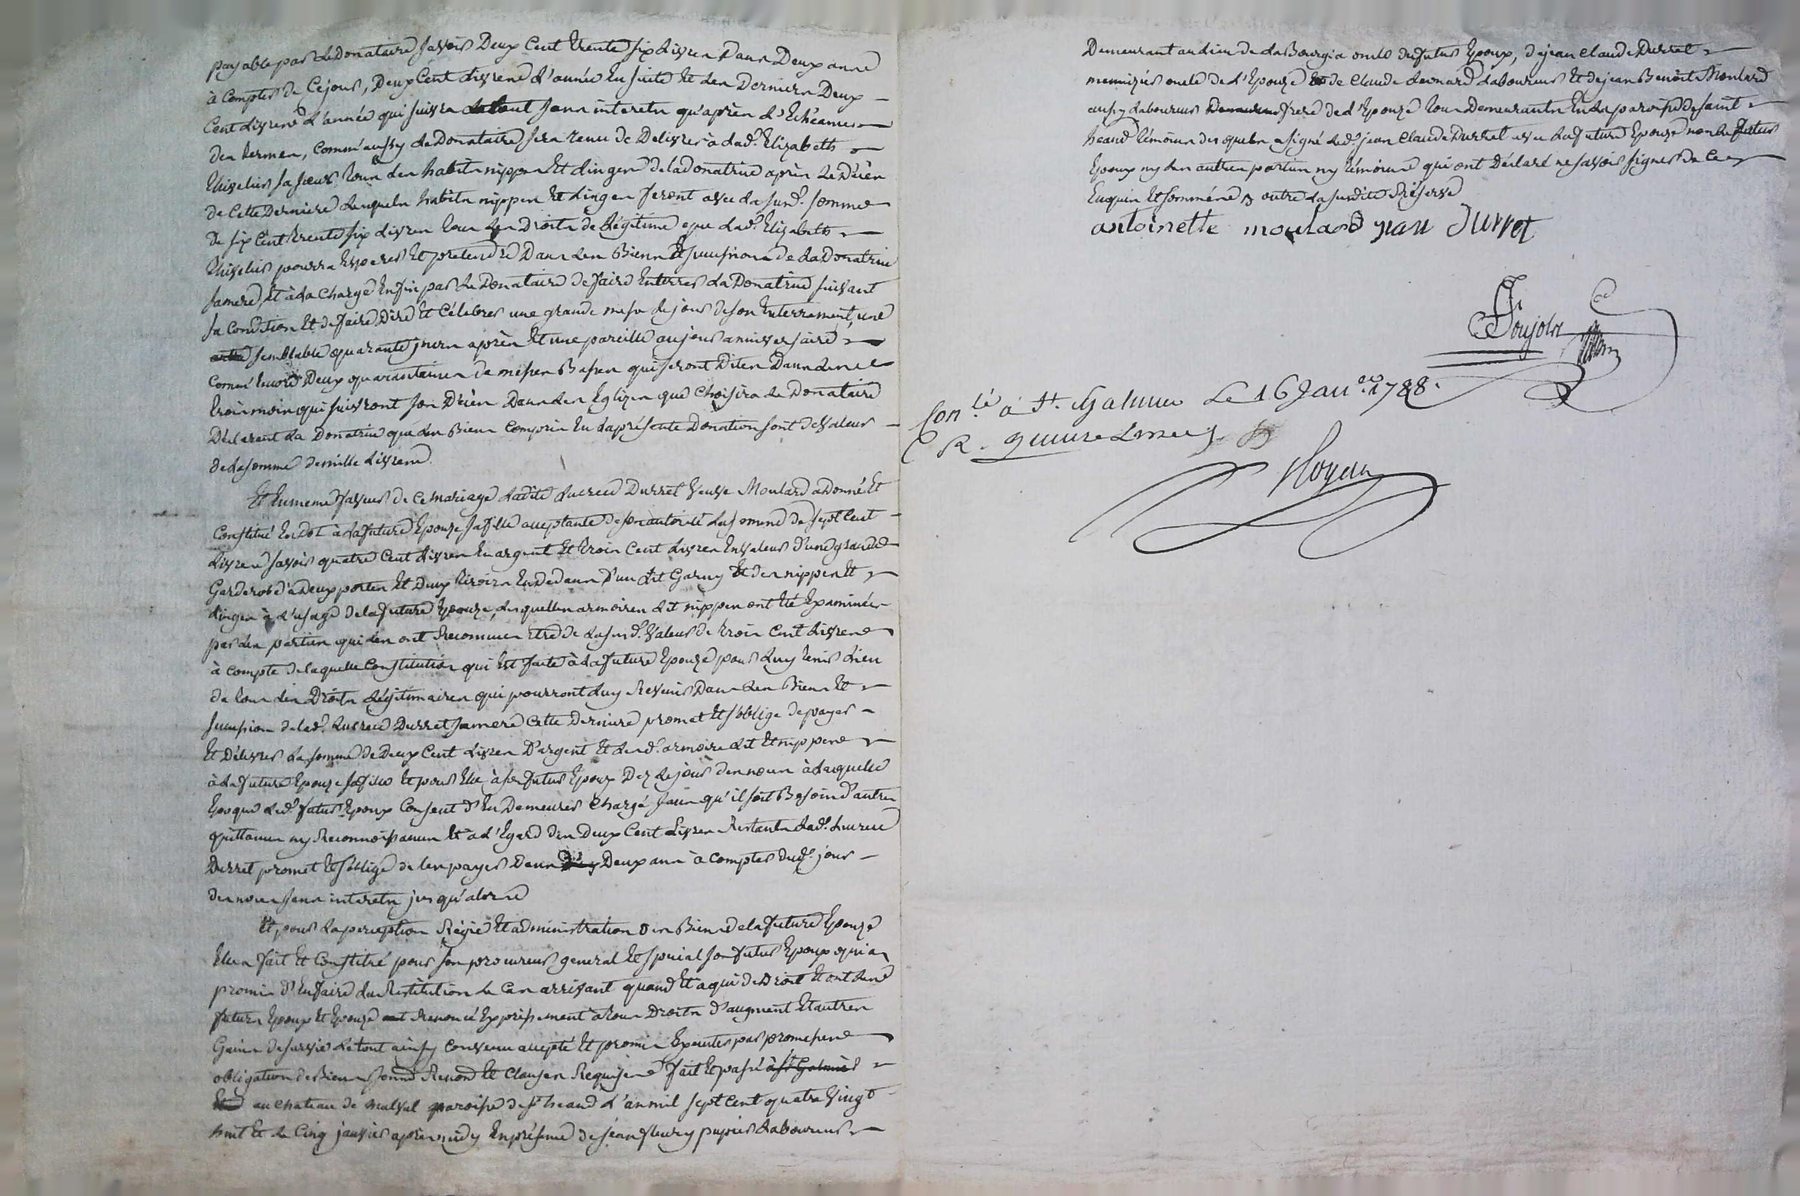 payable par le Donataire savoir Deux Cent trente six Livres Dans Deux ans
à Compter de Ce jour, Deux Cent Livres l'année Ensuite Et les Derniers Deux
Cent Livres l'année qui suivra le tout sans interets qu'après l'Echeance
des termes, Comme aussy le Donataire sera tenu de Delivrer à lad. Elizabeth
Thizelier sa sœur tous les habits nippes Et linges de la Donatrice après le Décès
de Cette Derniere lesquels habits nippes Et linges seront avec la susd. somme
de six Cent trente six Livres tous les Droits de Légitime que lad. Elizabeth
Thizelier pourra Esperer Et pretendre Dans les Biens Et succession de la Donatrice
sa mere, Et à la Charge Enfin par le Donataire de faire Enterrer la Donatrice suivant
sa Condition Et de faire Dire Et Célébrer une grande messe le jour de son Enterrement, une
semblable quarante jours après Et une pareille au jour anniversaire
Comme Encore Deux quarantaines de messes Basses qui seront Dites Dans les
trois mois qui suivront son Décès Dans les Eglizes que Choisira le Donataire
Déclarant la Donatrice que les Biens Compris En la présente Donation sont de valeur
de la somme de mille Livres
Et En meme faveur de Ce mariage ladite Lucrece Durret Veuve Moulard a Donné Et
Constitué En Dot à la future Epouze sa fille acceptante de son autorité la somme de sept Cent
Livres savoir quatre Cent Livres En argent Et trois Cent Livres En valeur d'une grande
Garderobe à Deux portes Et Deux tiroirs En Dedans d'un Lit Garny Et des nippes Et
linges à l'usage de la future Epouze, lesquelles armoires Lit nippes ont été Examinées
par les parties qui les ont Reconnues Etre de la susd. Valeur de trois Cent Livres
à Compte de laquelle Constitution qui Est faite à la future Epouze pour Luy tenir Lieu
de tous les Droits Légitimaires qui pourront Luy Revenir Dans les Biens Et
succession de lad. Lucrece Durret sa mere Cette Derniere promet Et s'oblige de payer
Et Délivrer la somme de Deux Cent Livres D'argent Et lesd. armoire Lit Et nippes
à la future Epouze sa fille Et pour Elle à son futur Epoux Dez le jour des noces à laquelle
Epoque led. futur Epoux Consent d'En Demeurer Chargé sans qu'il soit Besoin d'autres
quittances ny Reconnoissances Et à l'Egard des Deux Cent Livres Restants lad. Lucrece
Durret promet Et s'oblige de les payer Dans Deux ans à Compter dud. jour
des noces sans interets jusqu'alors
Et pour la perception Régie Et administration Des Biens de la future Epouze
Elle a fait Et Constitué pour son procureur general Et special son futur Epoux qui a
promis d'En faire la Restitution le Cas arrivant quand Et à qui de Droit Et ont lesd.
futurs Epoux Et Epouze Renoncé Expressement à tous Droits d'augment Et autres
Gains de survie le tout ainsy Convenu accepté Et promis Executer par promesses
obligation de Biens soumi. Renon. Et Clauses Requises fait Et passé à St Galmier
au chateau de Malval paroisse de St heand L'an mil sept Cent quatre Vingt
huit Et le Cinq janvier après midy En présence de jean fleury pupier Laboureur
Demeurant au lieu de la Bourgia oncle du futur Epoux, de jean Claude Durret
menuizier oncle de l'Epouze de Claude Laboureur Et de jean Benoit Moulard
aussy Laboureur frere de l'Epouze tous Demeurants En la paroisse de saint
heand témoins desquels a signé led. jean Claude Durret avec la future Epouze non le futur
Epoux ny les autres parties ny témoins qui ont Déclaré ne savoir signer de Ce
Enquis Et sommés outre la susdite Réserve
antoinette moulard jean Durret
Poujolat
Con.lé à St. Galmier Le 16 Jan.er 1788.
R.